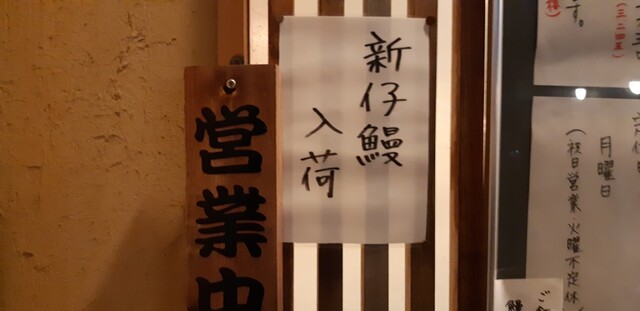 新仔鰻
入荷
営業中
定休日
月曜日
(祝日営業・火曜不定休)